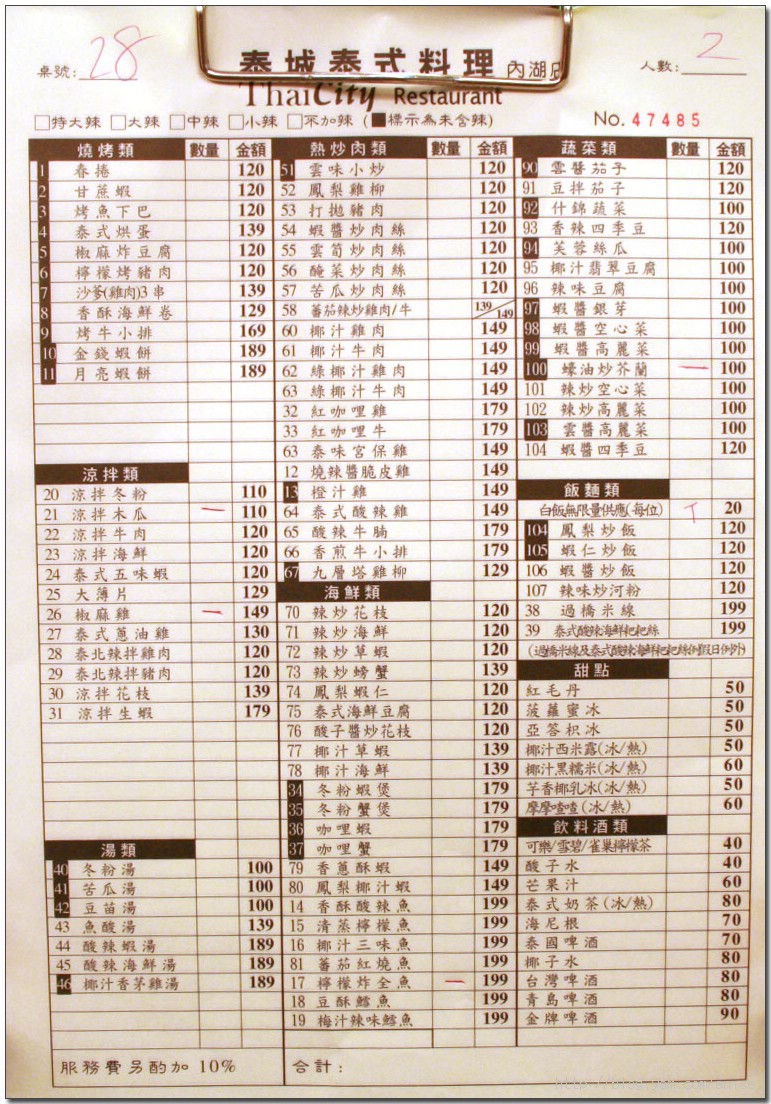 桌號: 28
泰城泰式料理 內湖店
人數: 2
ThaiCity Restaurant
□特大辣 □大辣 □中辣 □小辣 □不加辣 (■標示為未含辣)
No. 47485
燒烤類 數量 金額
1 春捲 120
2 甘蔗蝦 120
3 烤魚下巴 120
4 泰式烘蛋 139
5 椒麻炸豆腐 120
6 檸檬烤豬肉 120
7 沙爹(雞肉)3串 139
8 香酥海鮮卷 129
9 烤牛小排 169
10 金錢蝦餅 189
11 月亮蝦餅 189
涼拌類
20 涼拌冬粉 110
21 涼拌木瓜 一 110
22 涼拌牛肉 120
23 涼拌海鮮 120
24 泰式五味蝦 120
25 大薄片 129
26 椒麻雞 一 149
27 泰式蔥油雞 130
28 泰北辣拌雞肉 120
29 泰北辣拌豬肉 120
30 涼拌花枝 139
31 涼拌生蝦 179
湯類
40 冬粉湯 100
41 苦瓜湯 100
42 豆苗湯 100
43 魚酸湯 139
44 酸辣蝦湯 189
45 酸辣海鮮湯 189
46 椰汁香茅雞湯 189
熱炒肉類 數量 金額
51 雲味小炒 120
52 鳳梨雞柳 120
53 打拋豬肉 120
54 蝦醬炒肉絲 120
55 雲筍炒肉絲 120
56 醃菜炒肉絲 120
57 苦瓜炒肉絲 120
58 蕃茄辣炒雞肉/牛 139/149
60 椰汁雞肉 149
61 椰汁牛肉 149
62 綠椰汁雞肉 149
63 綠椰汁牛肉 149
32 紅咖哩雞 179
33 紅咖哩牛 179
63 泰味宮保雞 149
12 燒辣醬脆皮雞 149
13 橙汁雞 149
64 泰式酸辣雞 149
65 酸辣牛腩 179
66 香煎牛小排 179
67 九層塔雞柳 129
海鮮類
70 辣炒花枝 120
71 辣炒海鮮 120
72 辣炒草蝦 120
73 辣炒螃蟹 139
74 鳳梨蝦仁 120
75 泰式海鮮豆腐 120
76 酸子醬炒花枝 120
77 椰汁草蝦 139
78 椰汁海鮮 139
34 冬粉蝦煲 179
35 冬粉蟹煲 179
36 咖哩蝦 179
37 咖哩蟹 179
79 香蔥酥蝦 149
80 鳳梨椰汁蝦 149
14 香酥酸辣魚 199
15 清蒸檸檬魚 199
16 椰汁三味魚 199
81 蕃茄紅燒魚 199
17 檸檬炸全魚 一 199
18 豆酥鱈魚 199
19 梅汁辣味鱈魚 199
蔬菜類 數量 金額
90 雲醬茄子 120
91 豆拌茄子 120
92 什錦蔬菜 100
93 香辣四季豆 120
94 芙蓉絲瓜 100
95 椰汁翡翠豆腐 100
96 辣味豆腐 100
97 蝦醬銀芽 100
98 蝦醬空心菜 100
99 蝦醬高麗菜 100
100 蠔油炒芥蘭 一 100
101 辣炒空心菜 100
102 辣炒高麗菜 100
103 雲醬高麗菜 100
104 蝦醬四季豆 120
飯麵類
白飯無限量供應(每位) 20
104 鳳梨炒飯 120
105 蝦仁炒飯 120
106 蝦醬炒飯 120
107 辣味炒河粉 120
38 過橋米線 199
39 泰式酸辣海鮮粑粑絲 199
(過橋米線及泰式酸辣海鮮粑粑絲例假日例外)
甜點
紅毛丹 50
菠蘿蜜冰 50
亞答枳冰 50
椰汁西米露(冰/熱) 50
椰汁黑糯米(冰/熱) 60
芋香椰乳冰(冰/熱) 50
摩摩喳喳(冰/熱) 60
飲料酒類
可樂/雪碧/雀巢檸檬茶 40
酸子水 40
芒果汁 60
泰式奶茶(冰/熱) 80
海尼根 70
泰國啤酒 70
椰子水 80
台灣啤酒 80
青島啤酒 80
金牌啤酒 90
服務費另酌加 10%
合計: